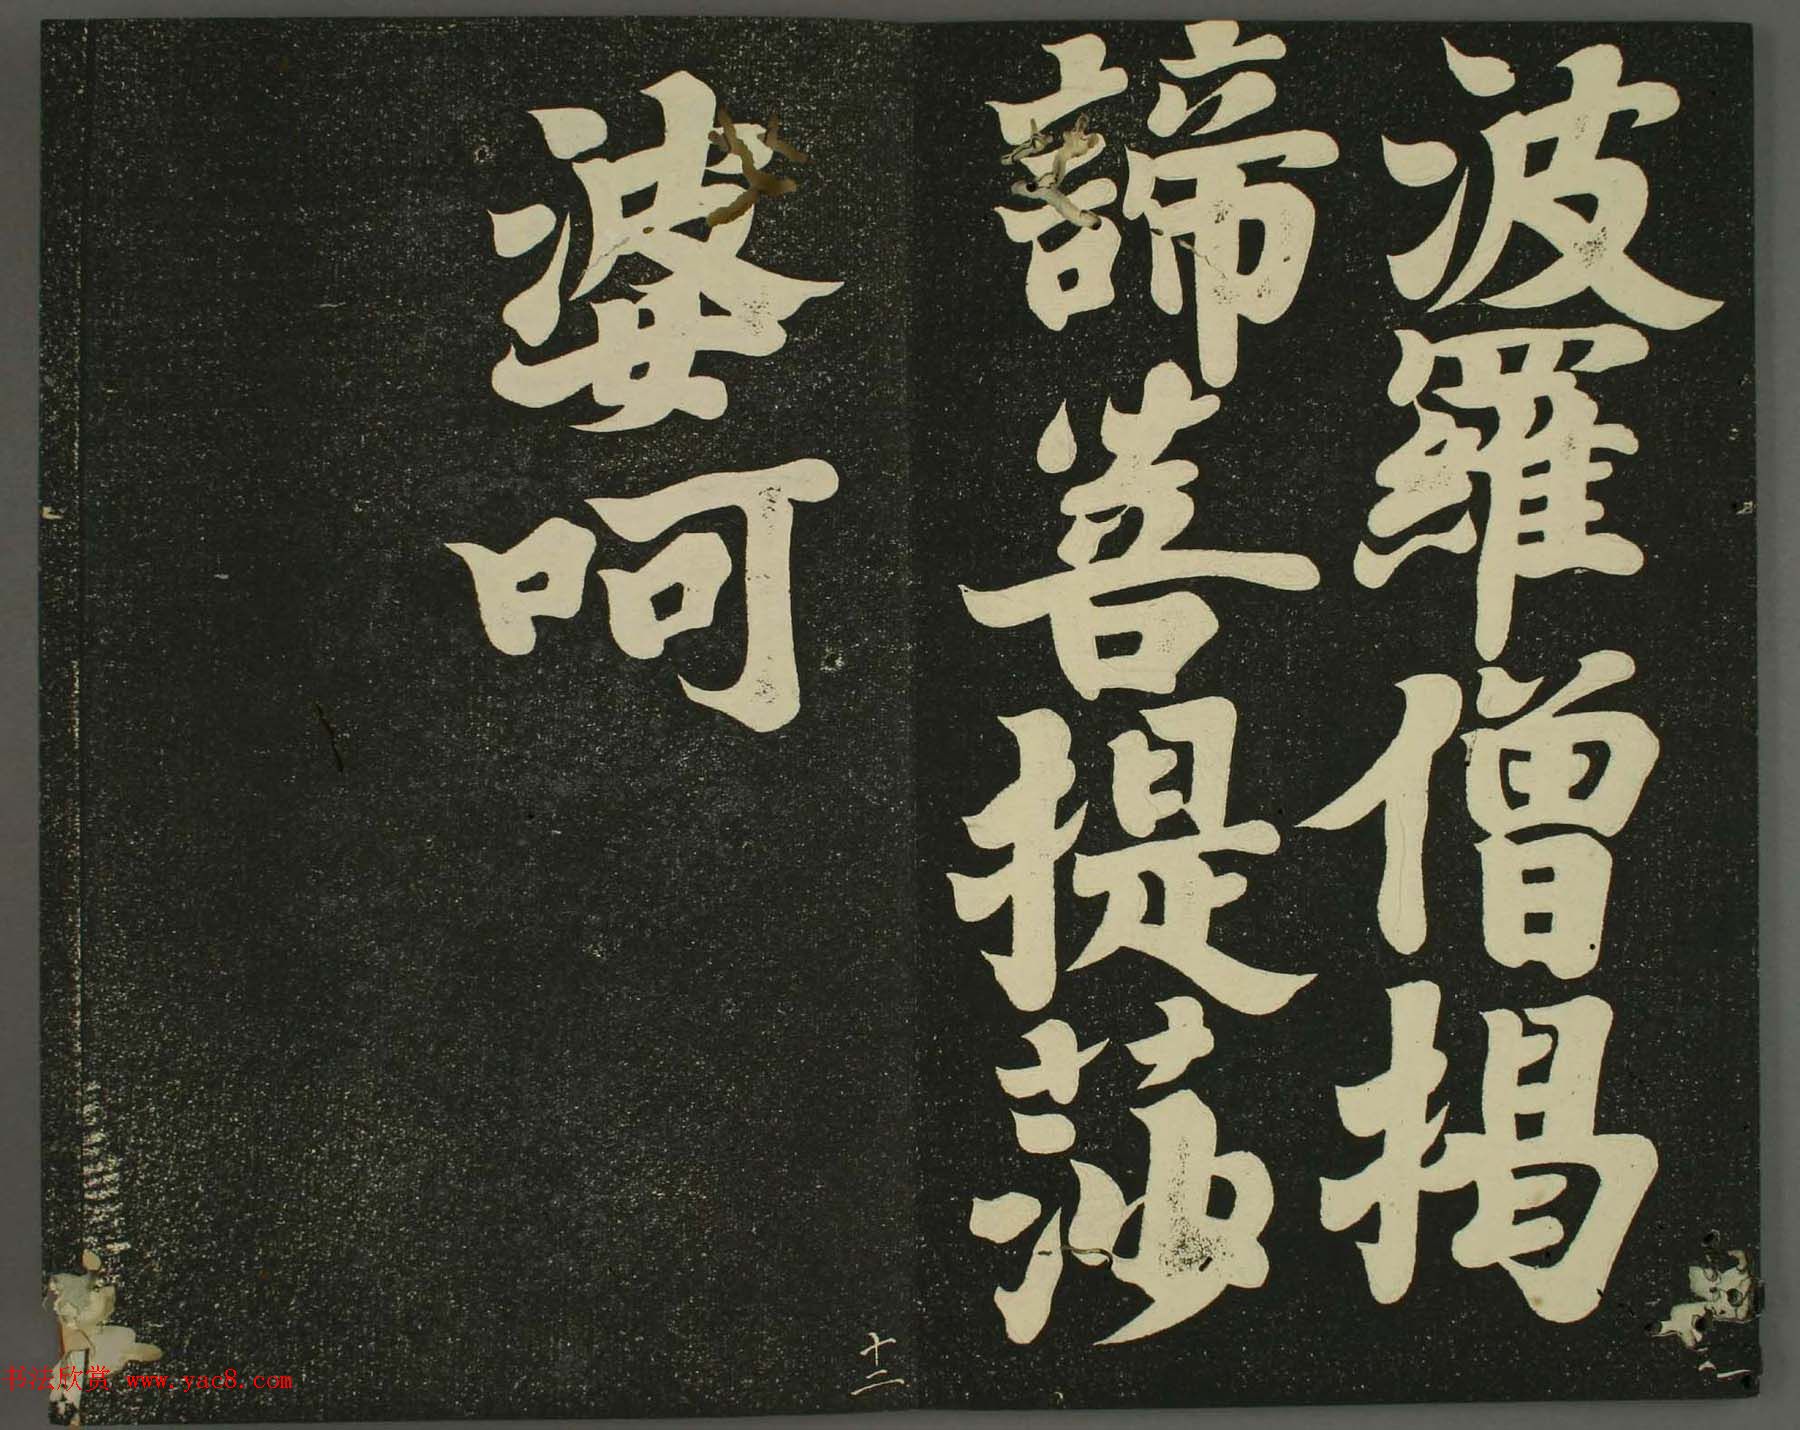 波羅僧揭
諦菩提莎
婆呵
十二
书法欣赏 www.yac8.com